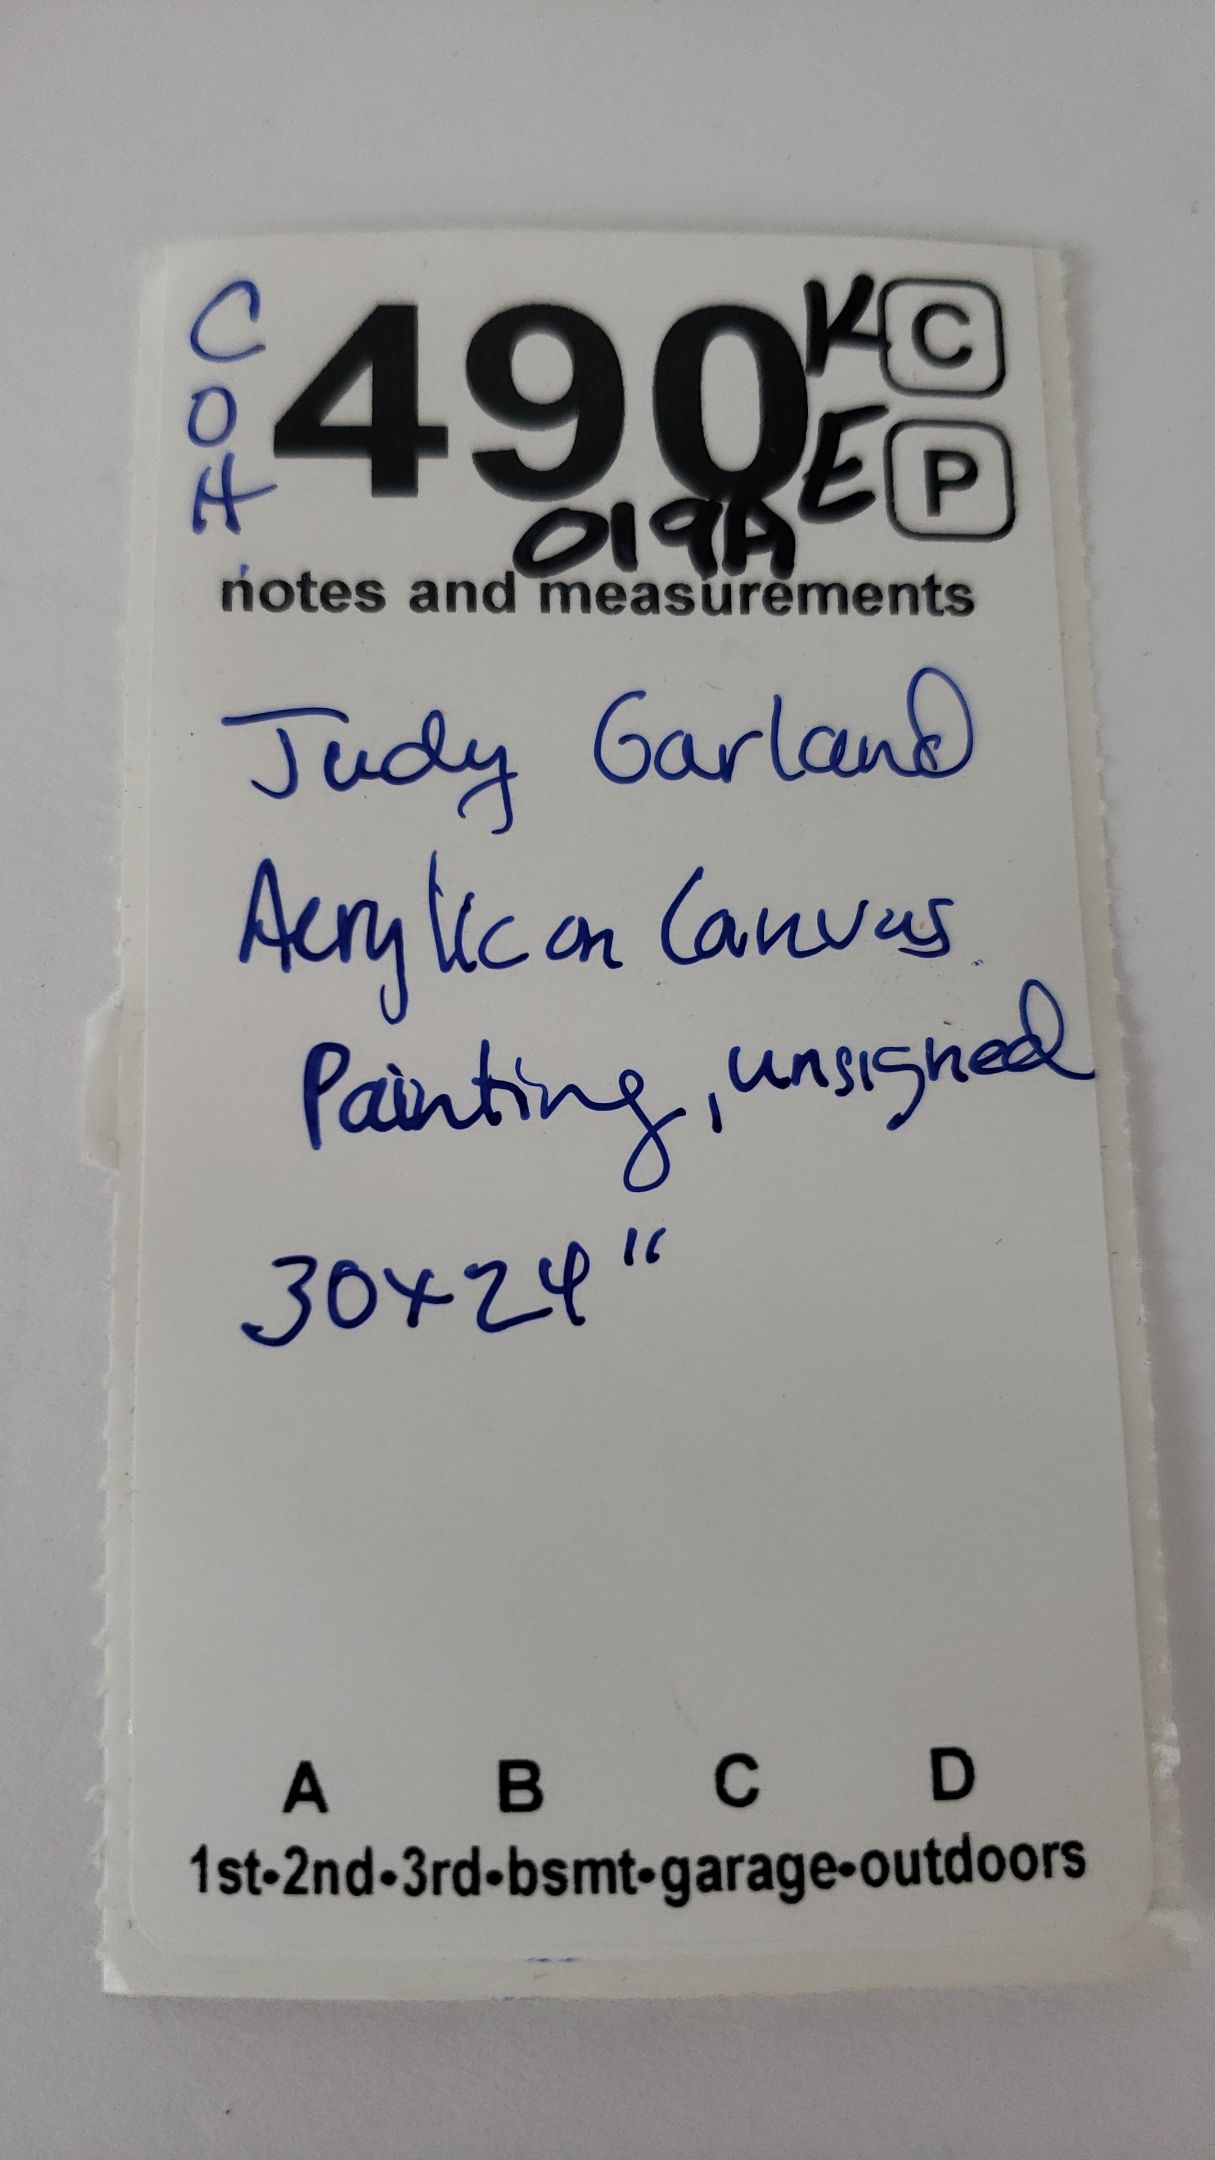 C
O
H
490
K C
E P
019A
notes and measurements
Judy Garland
Acrylic on Canvas
Painting, unsigned
30x24"
A B C D
1st•2nd•3rd•bsmt•garage•outdoors